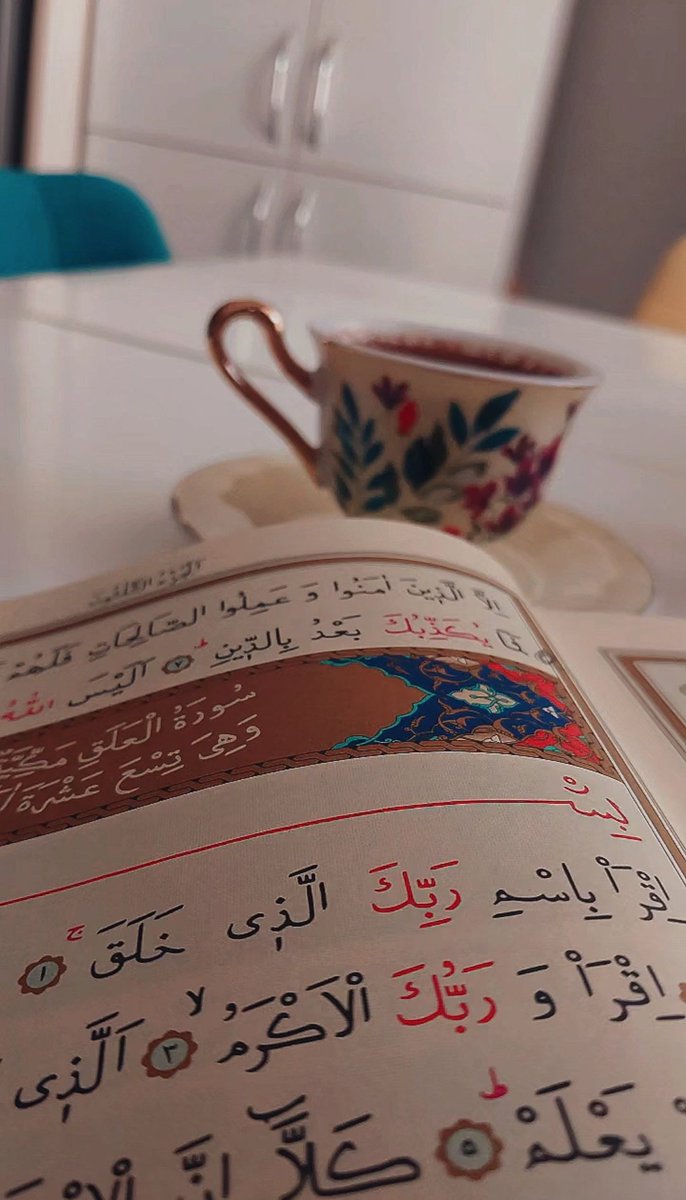 اِلَّا الَّذٖينَ اٰمَنُوا وَ عَمِلُوا الصَّالِحَاتِ فَلَهُمْ
يُكَذِّبُكَ بَعْدُ بِالدّٖينِ ؕ ٧ اَلَيْسَ اللّٰهُ
سُورَةُ الْعَلَقِ مَكِّيَّةٌ
وَهِىَ تِسْعَ عَشْرَةَ
اِقْرَأْ بِاسْمِ رَبِّكَ الَّذٖى خَلَقَ ۚ ١
اِقْرَأْ وَ رَبُّكَ الْاَكْرَمُ ۙ ٣ اَلَّذٖى
يَعْلَمْ ؕ ٥ كَلَّٓا اِنَّ